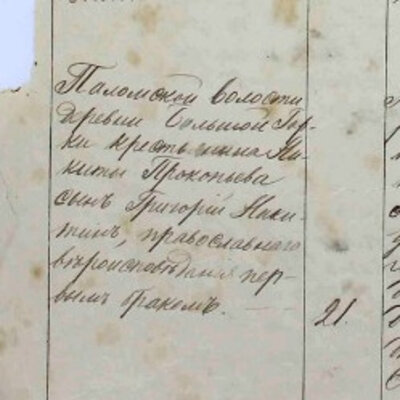 Паломской волости
деревни Большой Гор-
ки крестьянина Ни-
киты Прокопьева
сынъ Григорій Ники-
тинъ, православнаго
вѣроисповѣданія пер-
вымъ бракомъ.
21.